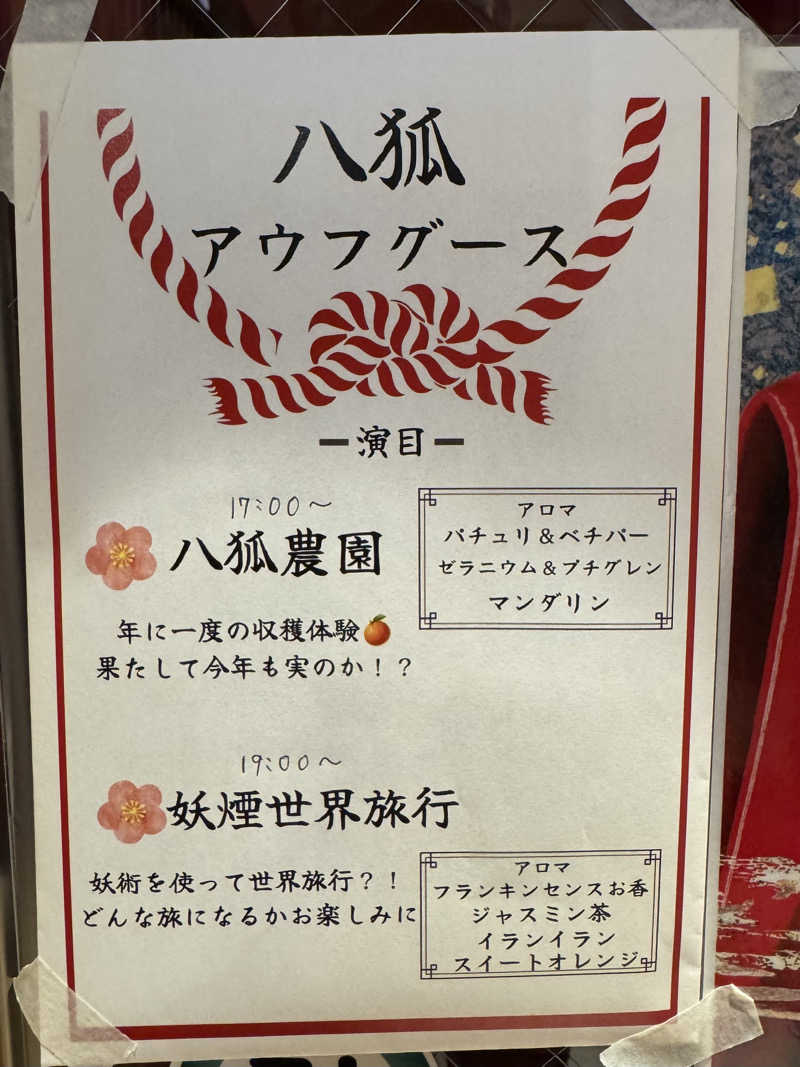 八狐
アウフグース
ー演目ー
17:00～
八狐農園
年に一度の収穫体験
果たして今年も実のか！？
アロマ
パチュリ＆ベチバー
ゼラニウム＆プチグレン
マンダリン
19:00～
妖煙世界旅行
妖術を使って世界旅行？！
どんな旅になるかお楽しみに
アロマ
フランキンセンスお香
ジャスミン茶
イランイラン
スイートオレンジ